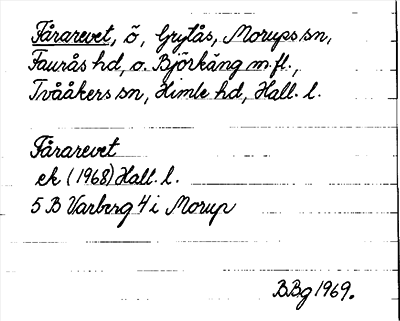 Fårarevet, ö, Grytås, Morups sn,
Faurås hd, o. Björkäng m.fl.,
Tvååkers sn, Himle hd, Hall. l.
Fårarevet
ek (1968) Hall. l.
5 B Varberg 4 i Morup
B.Bg 1969.